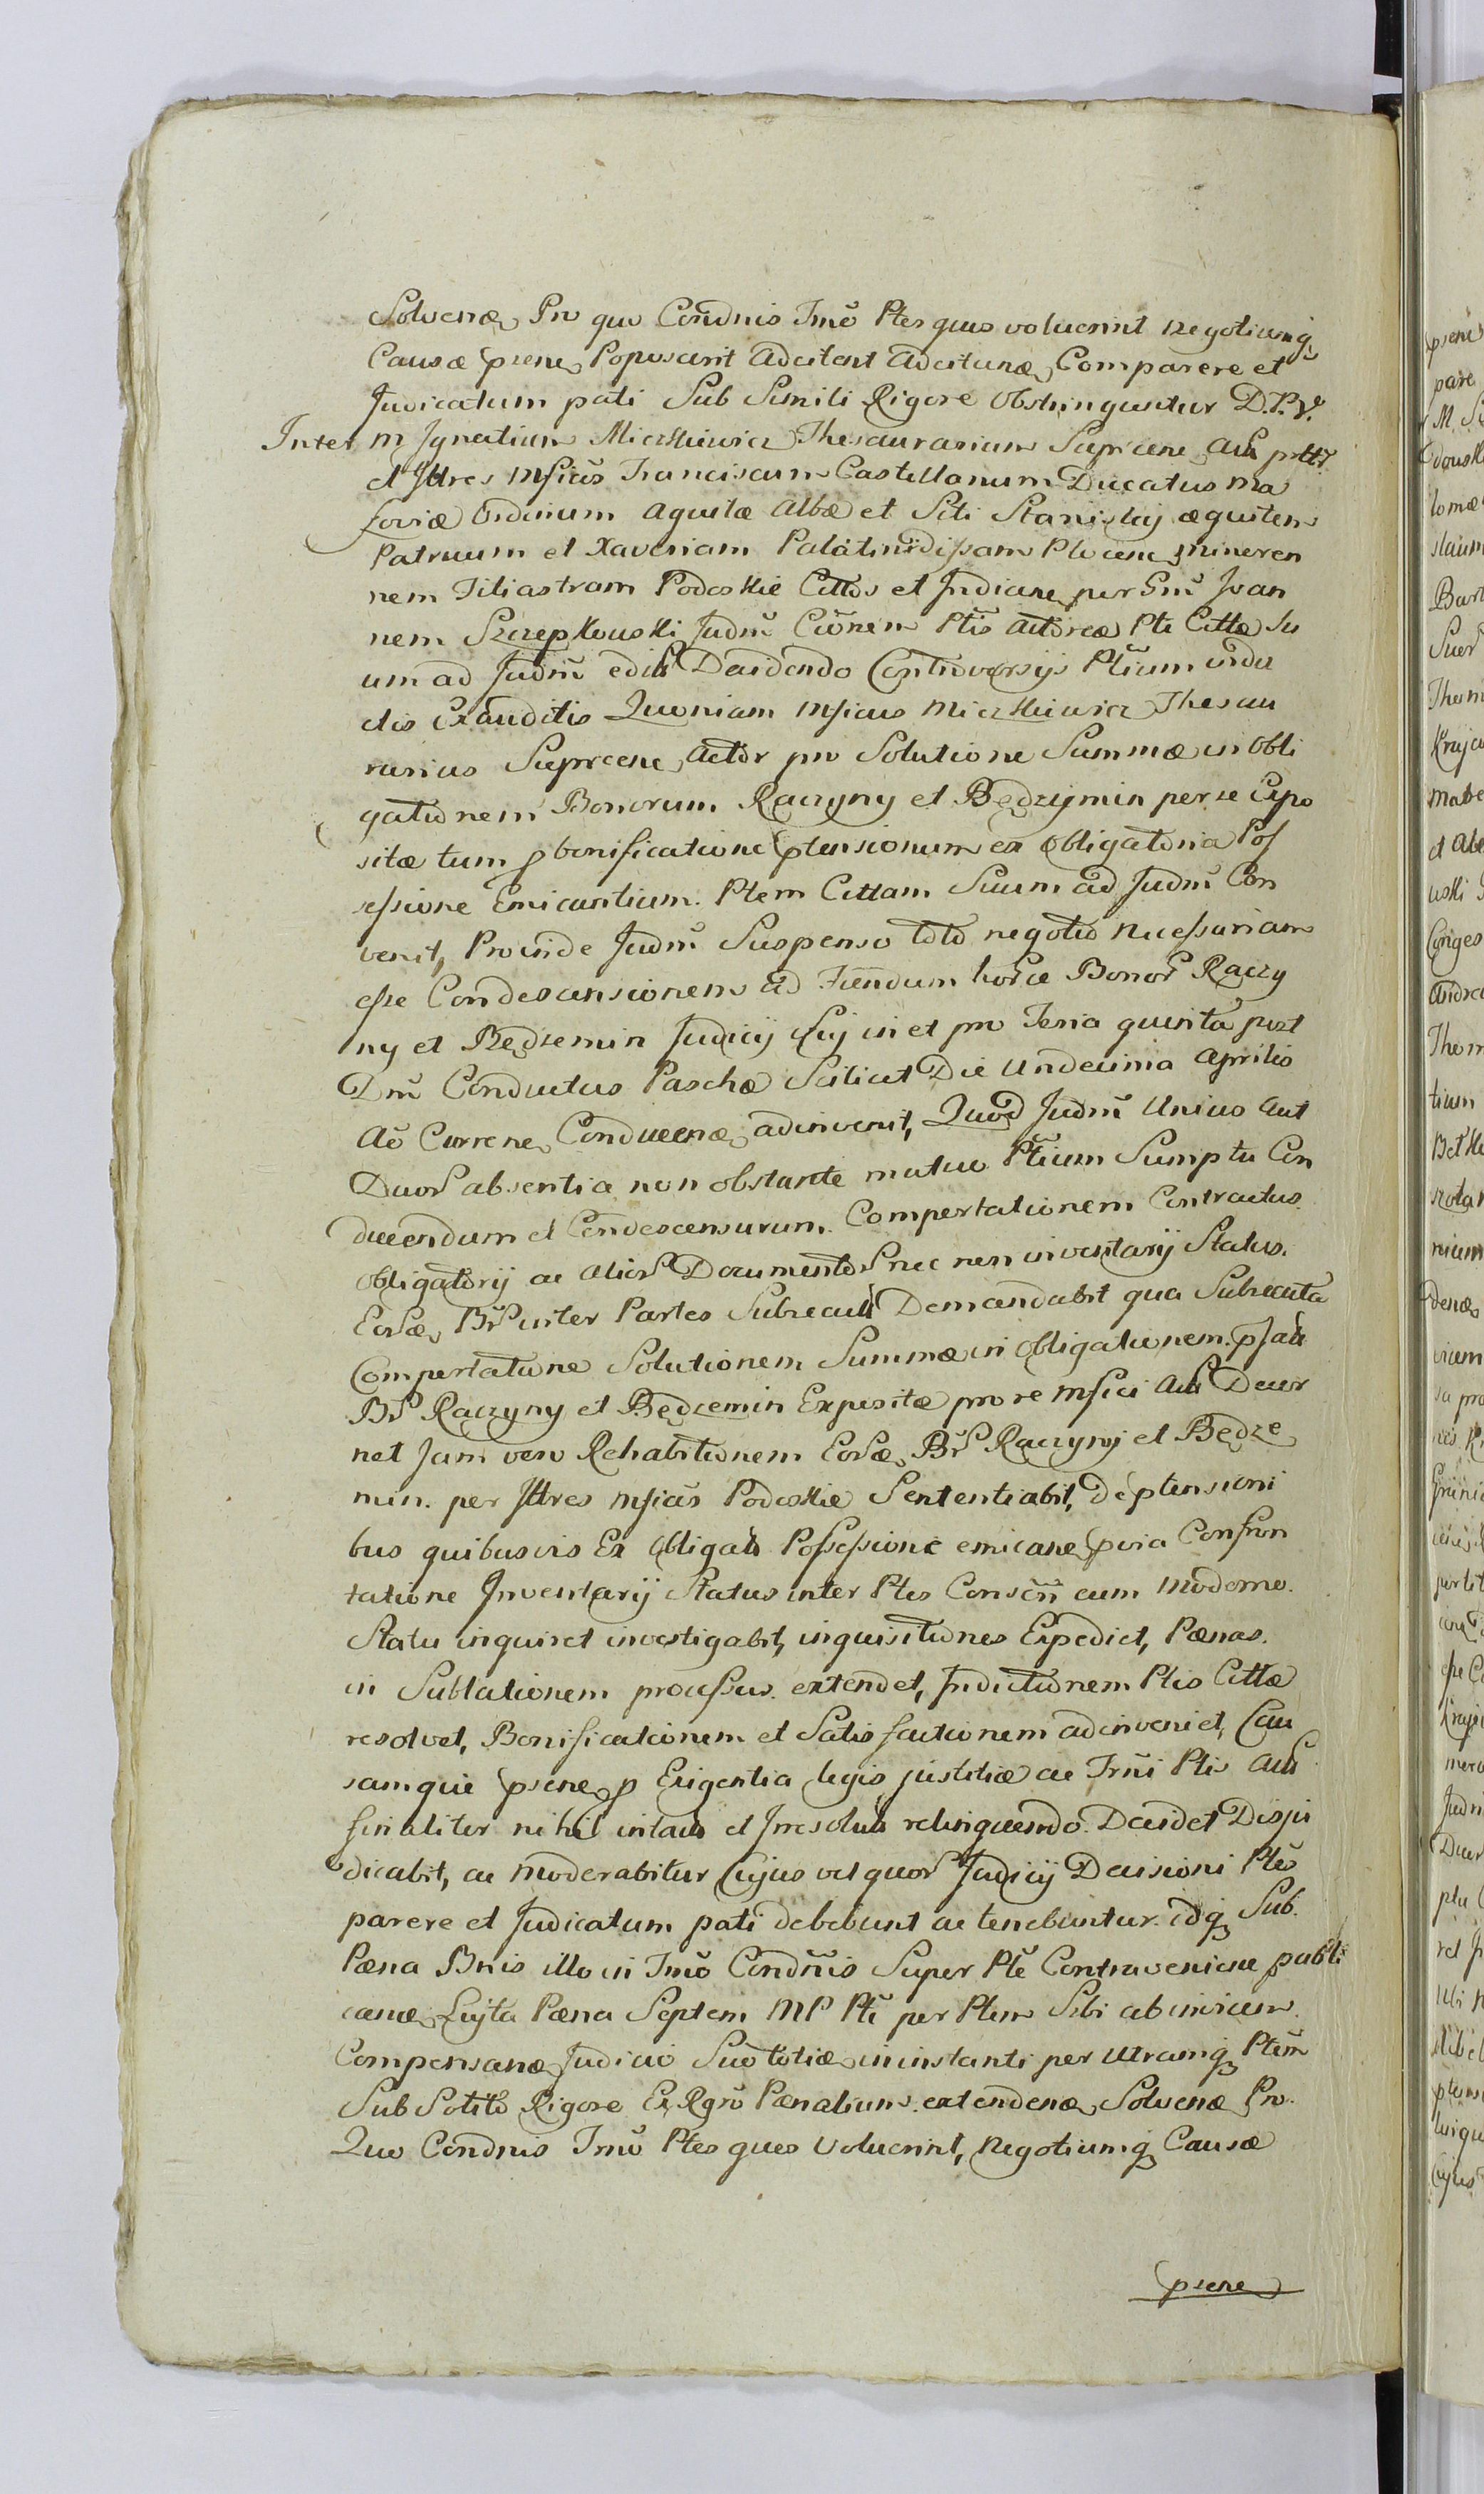 Solvenæ Pro quo Condnis Tmõ Ptes quas voluerint negotiumq
Causæ psene Poposcerit Adcitent Adcitanæ Comparere et
Judicatum pati Sub Simili Rigore Obstringuntur D.P.V.
Inter M Ignatium Miaskiewicz Thesaurarium Saprcene
et Jllres Mficũs Franciscum Castellanum Ducatus Ma
soviæ Ordinum Aquilæ Albæ et Scti Stanislaj æquitem
Patruum et Xaveriam Palatinidissam Plocene mineren
nem Filiastram Podoskie Cittos et Indicane per Gm̃ Joan
nem Szczepkowski Judm̃ Cõnem Ptis Actoreæ Pte Citta Su
um ad Judm̃ edit Decidendo Controversijs Ptium audi
tis Exauditis Quoniam Mficus Miaskiewicz Thesau
rarius Saprcene Actor pro Solutione Summæ in Obli
gationem Bonorum Raczyny et Będzymin per se Expo
sitæ tum p bonificatione ptensionum ex Obligatoria Pos
sessione Emicantium. Ptem Cittam Suum ad Judm̃ Con
venit, Proinde Judm̃ Suspenso toto negotio Necessariam
esse Condescensionem ad Fiendum horce Bonor Raczy
ny et Będzemin Judicij Suj in et pro Feria quinta post
Dm̃ Conductus Paschæ Scilicet Die Undecima Aprilis
Aõ Currene Conducenæ adinvenit, Quod Judm̃ Unius Aut
Duor absentia non obstante mutuo Ptium Sumptu Con
ducendum et Condescensurum Compertationem Contractus
Obligatorij ac Alior Documentor nec non inventarij Status
Eorcæ Br inter Partes Subsecuti Demandabit qua Subsecuta
Compertatione Solutionem Summæ in Obligationem psati
Br Raczyny et Będzemin Expositæ pro re Mfici Act Decer
net Jam vero Rehabitionem Eorcæ Br Raczyny et Będze
min per Jllres Mficũs Podoskie Sententiabit, De ptensioni
bus quibusvis Ex Obligat Possessione emicane pvia Confron
tatione Inventarij Status inter Ptes Conscñ cum Moderno
Statu inquiret investigabit, inquisitiones Expediet, Pænas
in Sublationem processus extendet, Indictionem Ptis Cittæ
resolvet, Bonificationem et Satisfactionem adinveniet, Cau
samque psene p Exigentia legis justitiæ ac Trm̃i Ptis Act
finaliter nihil intact et Irresolut relinquendo Decidet Disju
dicabit, ac Moderabitur Cujus vel quor Judicij Decisioni Ptes
parere et Judicatum pati debebunt ac tenebuntur idq Sub
Pæna Bnis illo in Tmõ Condñis Super Pte Contraveniene publi
canæ Luita Pæna Septem MP Pti per Ptem Sibi ab invicem
Compensanæ Judicio Suo totiæ in instanti per Utramq Ptem
Sub Solito Rigore Ex Rgrõ Pænalium extendenæ Solvenæ Pro
Quo Condnis Tmõ Ptes quos Voluerint, Negotiumq Causæ
psene